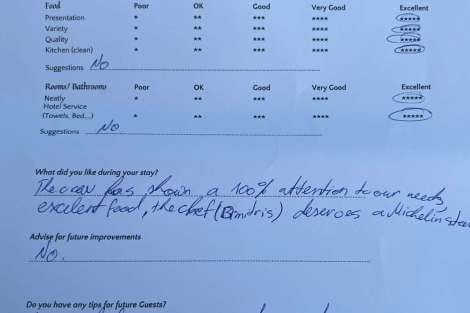 Food Poor OK Good Very Good Excellent
Presentation * ** *** **** *****
Variety * ** *** **** *****
Quality * ** *** **** *****
Kitchen (clean) * ** *** **** *****
Suggestions No
Rooms/ Bathrooms Poor OK Good Very Good Excellent
Neatly * ** *** **** *****
Hotel Service
(Towels, Bed....) * ** *** **** *****
Suggestions No
What did you like during your stay?
The crew has shown a 100% attention to our needs,
excelent food, the chef (Dimitris) deserves a Michelin star
Advise for future improvements
No.
Do you have any tips for future Guests?